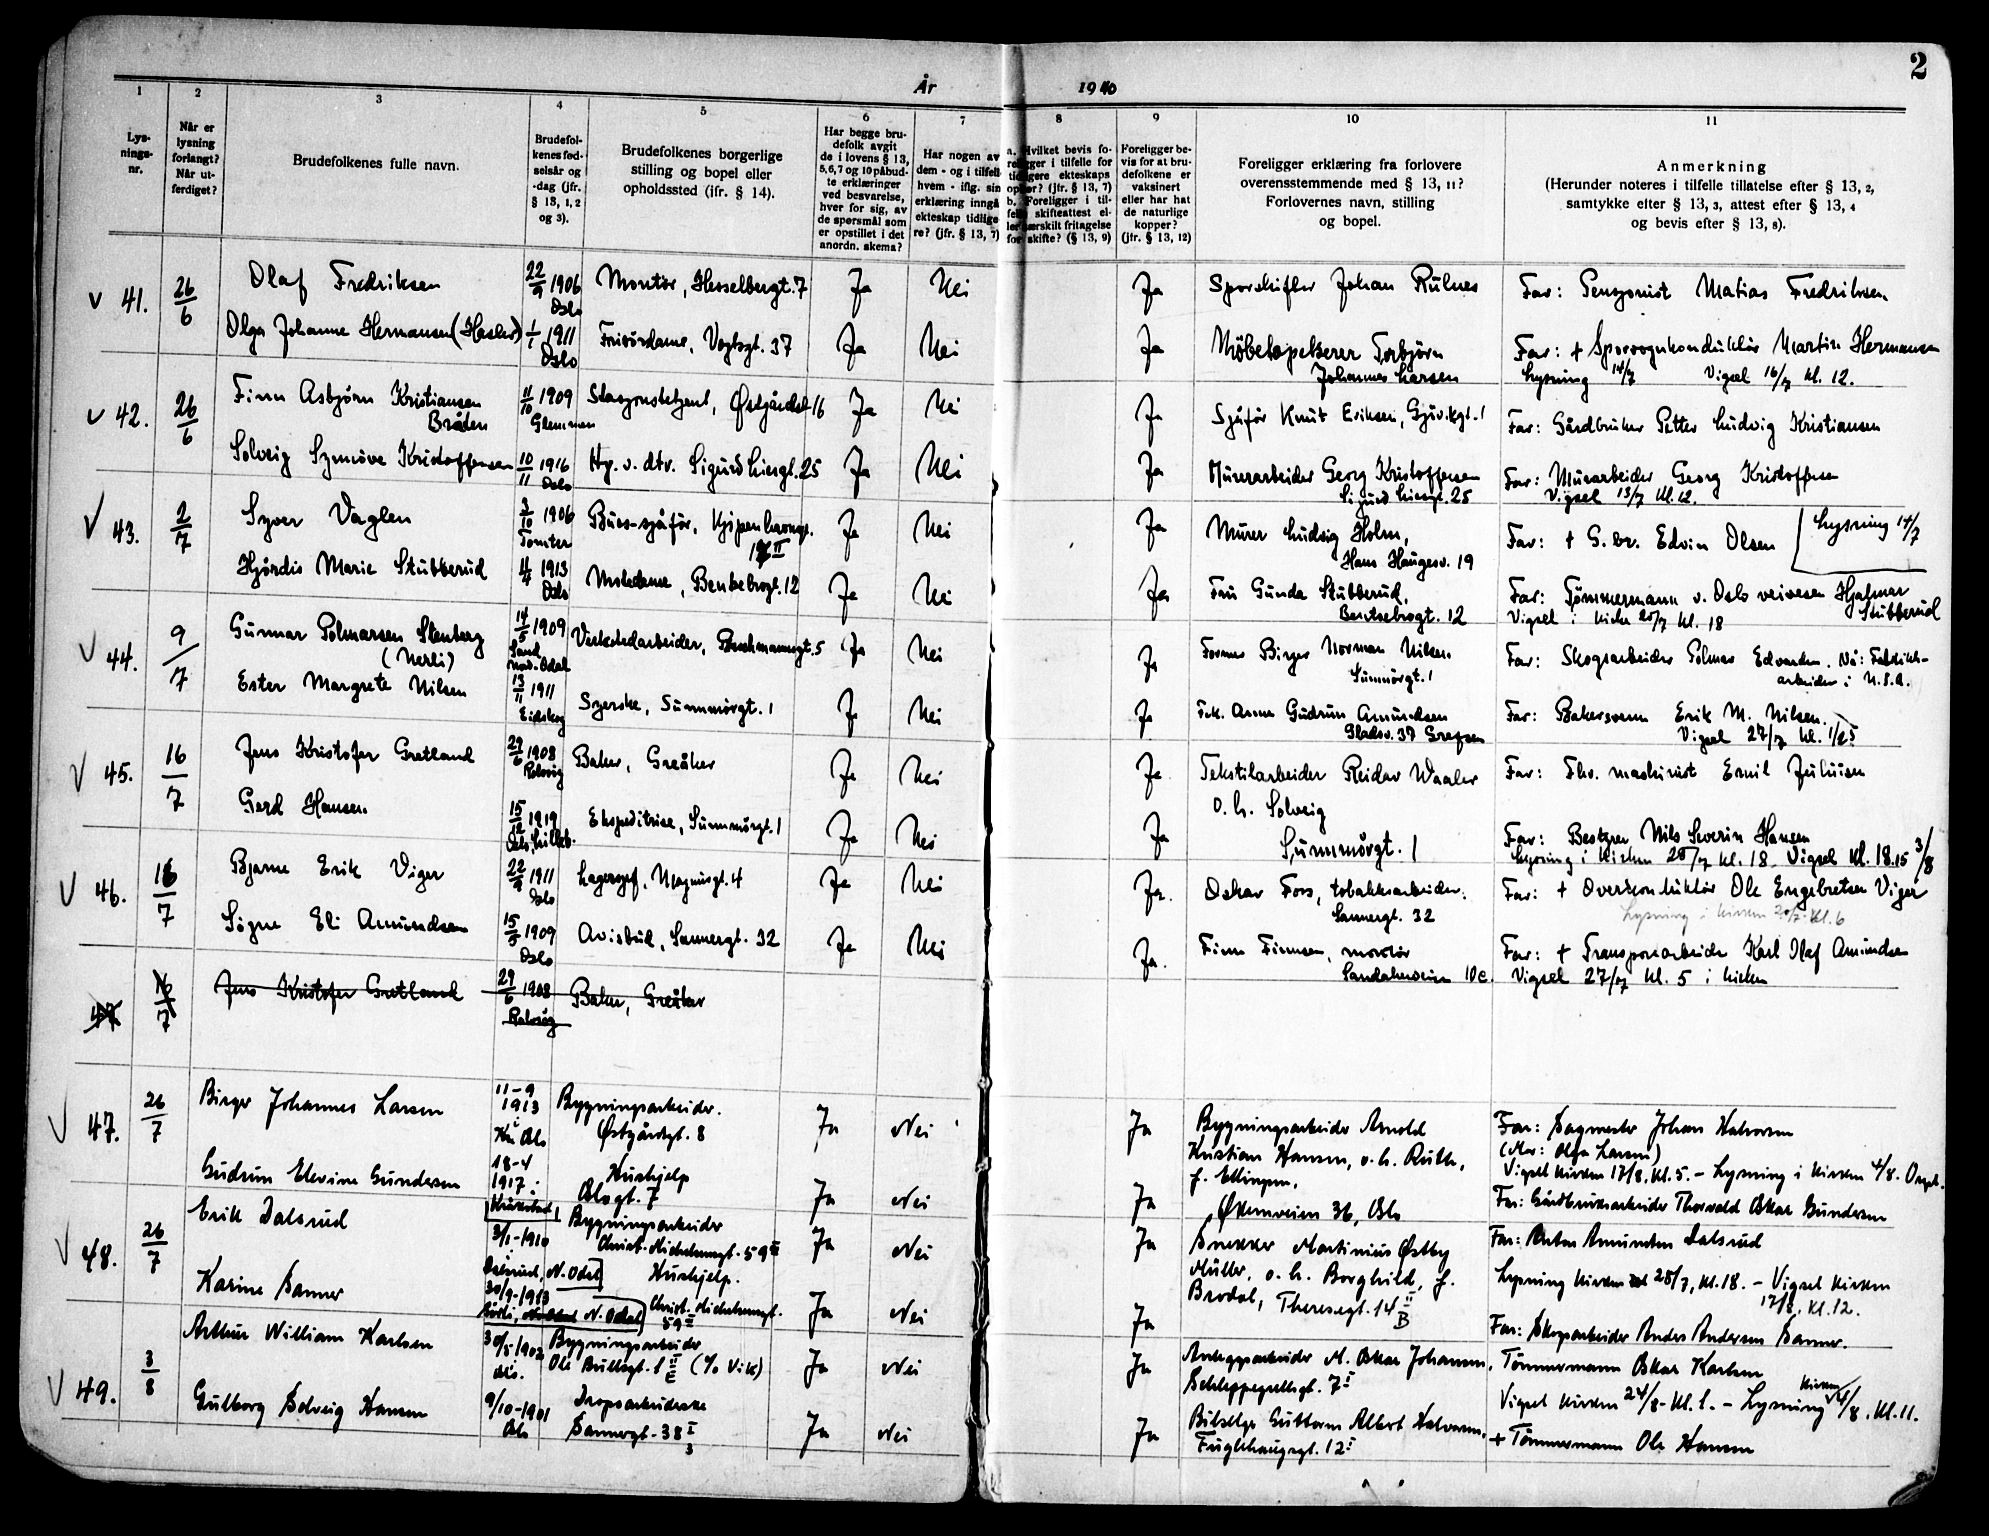 2
År 1940
1 2 3 4 5 6 7 8 9 10 11
Lys-
nings-
nr.
Når er
lysning
forlangt?
Når ut-
ferdiget?
Brudefolkenes fulle navn.
Brudefol-
kenes fød-
selsår og
-dag (jfr.
§ 13, 1, 2
og 3).
Brudefolkenes borgerlige
stilling og bopel eller
opholdssted (jfr. § 14).
Har begge bru-
defolk avgit
de i lovens § 13,
5,6,7 og 10 påbud-
te erklæringer
ved besvarelse,
hver for sig, av
de spørsmål som
er opstillet i det
anordn. skema?
Har nogen av
dem - og i tilfelle
hvem - iflg. sin
erklæring inngå
ekteskap tidlige
re? (jfr. § 13, 7)
a. Hvilket bevis fo-
religger i tilfelle for
tidligere ekteskaps
ophør? (jfr. § 13, 7)
b. Foreligger i til-
felle skifteattest el-
ler særskilt fritagelse
for skifte? (§ 13, 9)
Foreligger be-
vis for at bru-
defolkene er
vaksinert
eller har hat
de naturlige
kopper?
(jfr. § 13, 12)
Foreligger erklæring fra forlovere
overensstemmende med § 13, 11?
Forlovernes navn, stilling
og bopel.
Anmerkning
(Herunder noteres i tilfelle tillatelse efter § 13, 2,
samtykke efter § 13, 3, attest efter § 13, 4
og bevis efter § 13, 8).
V 41. 26/6 Olaf Fredriksen 22/9 1906 Oslo Montør, Hesselbergt. 7 Ja Nei Ja Johan Rülnes Far: Pensjonist Matias Fredriksen
Olga Johanne Hermansen (Hasler) 1/1 1911 Oslo Frisørdame, Vogtsgt. 37 Ja Nei Ja Møbeltapetserer Torbjørn
Johannes Larsen
Far: + Sporvognkonduktør Martin Hermansen
Lysning 14/7 Vigsel 16/7 kl. 12.
V 42. 26/6 Finn Asbjørn Kristiansen
Bråten
11/10 1909 Glemmen Stasjonsbetjent, Østgårdsgt 16 Ja Nei Ja Sjåfør Knut Eriksen, Far: Gårdbruker Petter Ludvig Kristiansen
Solveig Synnøve Kristoffersen 10/11 1916 Oslo Hj. v. dtr. Sigurd Liesgt. 25 Ja Nei Ja Murerarbeider Georg Kristoffersen
Sigurd Liesgt. 25
Far: Murarbeider Georg Kristoffersen
Vigsel 13/7 kl. 12.
V 43. 2/7 Syver Vaglen 3/10 1906 Tomter Buss-sjåfør, Kjøpenhavngt. Ja Nei Ja Murer Ludvig Holm,
Hans Haugesv. 19
Far: + G.br. Edvin Olsen
Lysning 14/7
Hjørdis Marie Stubberud 1913 Oslo Bentsebrogt. 12 Ja Nei Ja Fru Gunda Stubberud,
Bentsebrogt. 12
Far: Tømmermann v. Oslo veivesen Hjalmar
Stubberud
Vigsel i kirke 20/7 kl. 18
V 44. 9/7 Gunnar Polmarsen Stenberg
14/5 1909
Sand
Nord-Odal
Verkstedarbeider, 5 Ja Nei Ja Former Birger Norman Nilsen.
Sunnmørgt. 1
Far: Skogsarbeider Polmar Edvardsen. Nå: Fabrikk-
arbeider i U.S.A.
Ester Margrete Nilsen 13/11 1911 Eidskog Syerske, Sunnmørgt. 1 Ja Nei Ja Frk. Anna Gudrun Amundsen
Gladsv. 37 Grefsen
Far: Bakersvenn Erik M. Nilsen.
Vigsel 27/7 kl.
V 45. 16/7 Jens Kristofer Gretland 29/6 1908 Rolvsøy Baker, Greåker Ja Nei Ja Tekstilarbeider Reidar Waaler
o. h. Solveig
Sunnmørgt. 1
Far: Fhv. maskinist Emil Juliusen
Gerd Hansen 15/12 1919 Ekspeditrise, Sunnmørgt. 1 Ja Nei Ja
Far: Bestyrer Nils Severin Hansen
Lysning i kirken kl. 18. Vigsel kl. 18.15 3/8
V 46. 18/7 Bjarne Erik Viger 22/9 1911 Oslo Lagersjef, 4 Ja Nei Ja. Oskar Fors, tobakksarbeider.
Sannergt. 32
Far: + Overkonduktør Ole Engebretsen Viger
Lysning i kirken kl. 6
Signe Eli Amundsen 15/5 1909 Oslo Avisbud, Sannergt. 32 Ja Nei Ja. Finn Finnsen, montør
Sandakerveien 10 c.
Far: + Transportarbeider Karl Olaf Amundsen
Vigsel 27/7 kl. 5 i kirken
47 16/7 Jens Kristofer Gretland 29/6 1908 Rolvsøy Baker, Greåker
V 47. 26/7 Birger Johannes Larsen 11-9
1913
i Oslo
Bygningsarbeider.
Østgårdsgt. 8
Ja Nei Ja
Bygningsarbeider Arnold
Kristian Hansen, o. h. Ruth,
f. Ellingsen,
Økernveien 36, Oslo
Far: Sagmester Johan Halvorsen
(Mor: Olga Larsen)
Vigsel Kirken 17/8. kl. 5. - Lysning i kirken 4/8.
Gudrun Elevine Gundersen 18-4
1917:
Hushjelp
Oslogt. 7
Ja Nei Ja
Far: Gårdbruksarbeider Thorvald Oskar Gundersen
V 48. 26/7 Erik Dalsrud 3/1-1910
Dalsrud, N. Odal
Bygningsarbeider
Christ. Michelsensgt. 59 II
Ja Nei Ja
Snekker Martinius Østby
Müller, o. h. Borghild, f.
Brodal, Theresegt. 14 II
B
Far: Anton Amundsen Dalsrud
Lysning Kirken 28/7, kl. 18. - Vigsel kirken
17/8, kl. 12.
Karine Sanner 30/9-1913
N. Odal
Hushjelp.
Christ. Michelsensgt.
59 II
Ja Nei Ja
Far: Skogsarbeider Anders Andersen Sanner.
V 49. 3/8 Arthur William Karlsen 30/5-1902
Oslo.
Bygningsarbeider
Ole Bullsgt. 1 II E (c/o Vik)
Ja Nei Ja
Anleggsarbeider M. Oskar Johansen,
Schleppegrellsgt. 7 I
Tømmermann Oskar Karlsen
Vigsel kirken 24/8 - kl. 1. - Lysning kirken 4/8. kl. 11.
Gulborg Solveig Hansen 9/10-1901
Oslo
Dropsarbeiderske
Sannergt. 38 I
3
Ja Nei Ja
Bilselger Guttorm Albert Halvorsen,
Fuglehaugsgt. 12 I
+ Tømmermann Ole Hansen